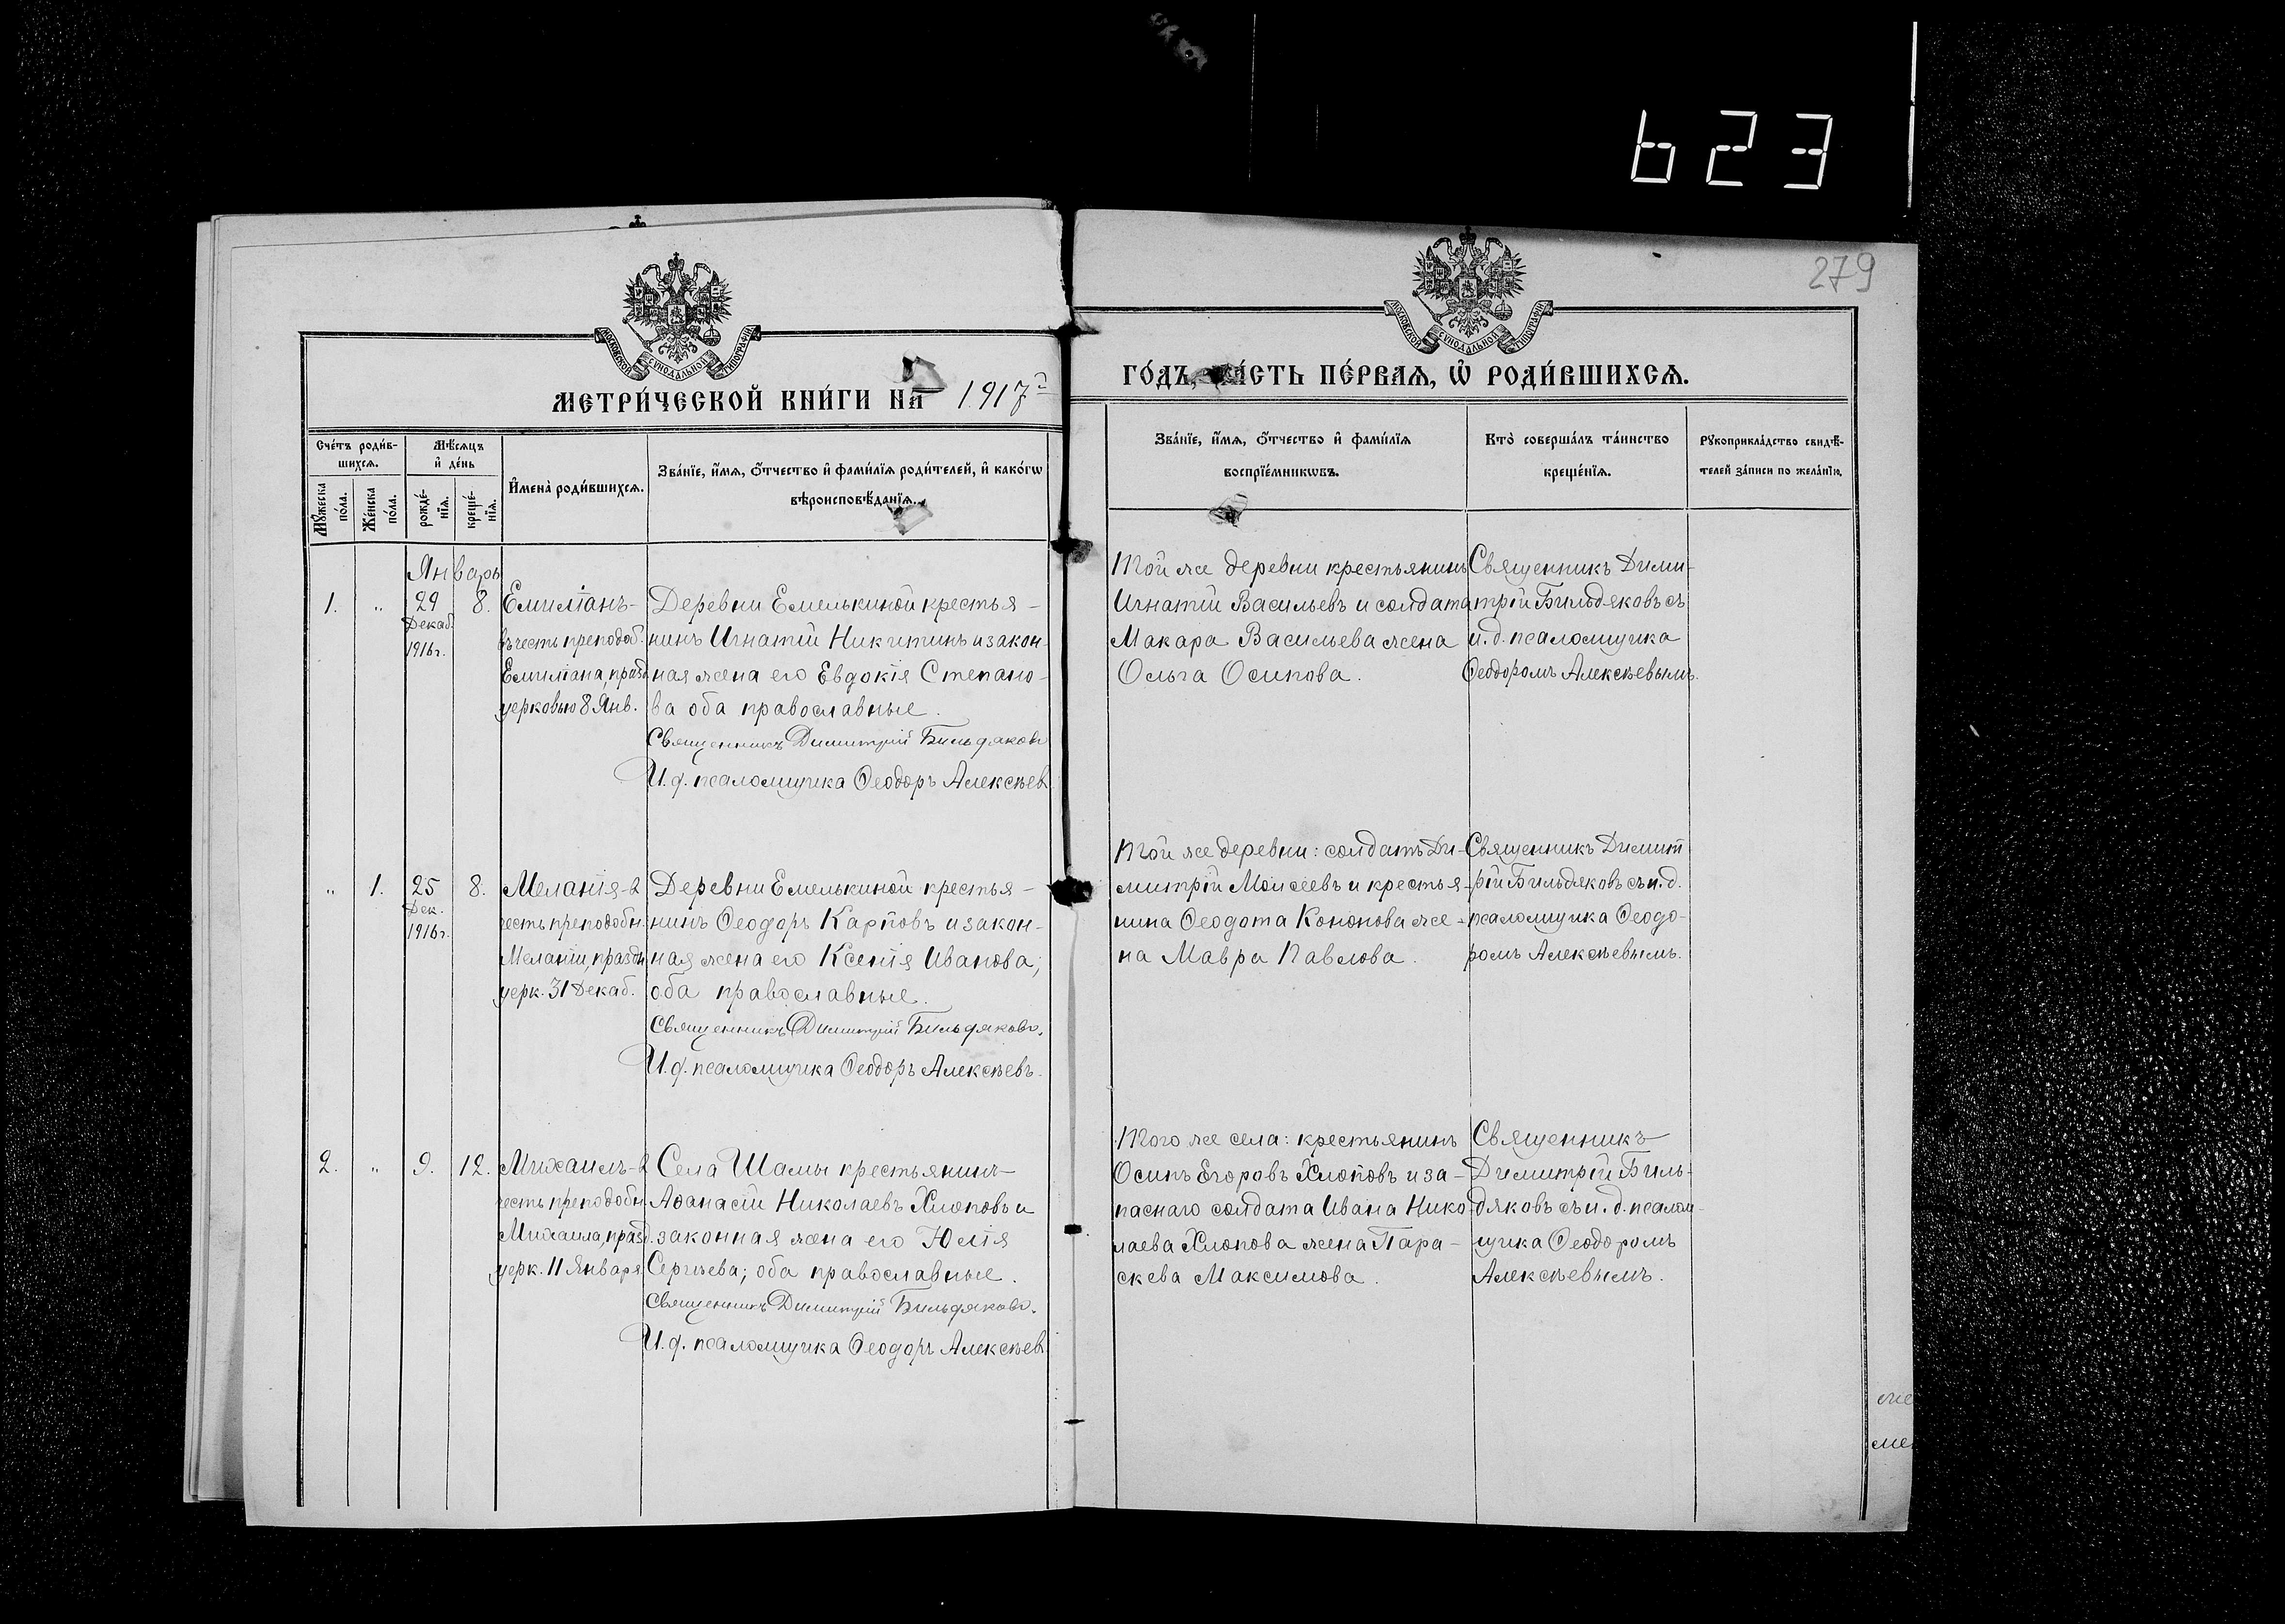 623
279
МОСКОВСКОЙ СѴНОДАЛЬНОЙ ТИПОГРАФІИ
МОСКОВСКОЙ СѴНОДАЛЬНОЙ ТИПОГРАФІИ
МЕТРИ́ЧЕСКОЙ КНИ́ГИ НА 1917й
ГО́ДЪ, ЧА́СТЬ ПЕ́РВАЯ, Ѽ РОДИ́ВШИХСЯ.
Сче́тъ роди́в-
шихся.
Мꙋ́жеска
по́ла.
Же́нска
по́ла.
Мѣ́сяцъ
и҆ де́нь
рожде́-
нїѧ.
креще́-
нїѧ.
И҆мена̀ роди́вшихся.
Зва́нїе, и҆́мѧ, ѻ҆́тчество и҆ фами́лїѧ роди́телей, и҆ како́гѡ
вѣроисповѣ́данїѧ.
Зва́нїе, и҆́мѧ, ѻ҆́тчество и҆ фами́лїѧ
воспрїе́мникѡвъ.
Кто̀ соверша́лъ та́инство
креще́нїѧ.
Рꙋкоприкла́дство свидѣ́-
телей за́писи по жела́нїю.
Январь
1.
"
29
Декаб.
1916г.
8.
Емиліанъ-
въ честь преподоб.
Емиліана, празд.
церковью 8 Янв.
Деревни Емелькиной крестья-
нинъ Игнатій Никитинъ и закон-
ная жена его Евдокія Степано-
ва оба православные.
Священникъ Димитрій Бильдяковъ
И. д. псаломщика Ѳеодоръ Алексѣевъ
Той же деревни крестьянинъ
Игнатій Васильевъ и солдата
Макара Васильева жена
Ольга Осипова.
Священникъ Дими-
трій Бильдяковъ съ
и. д. псаломщика
Ѳеодоромъ Алексѣевымъ.
"
1.
25
Дек.
1916г.
8.
Меланія-в
честь преподобн.
Меланіи, праздн.
церк. 31 Декаб.
Деревни Емелькиной крестья-
нинъ Ѳеодоръ Карповъ и закон-
ная жена его Ксенія Иванова;
оба православные.
Священникъ Димитрій Бильдяковъ.
И. д. псаломщика Ѳеодоръ Алексѣевъ.
Той же деревни: солдатъ Ди-
митрій Моисеевъ и крестья-
нина Ѳеодота Кононова же-
на Мавра Павлова.
Священникъ Димит
рій Бильдяковъ съ и. д.
псаломщика Ѳеодо-
ромъ Алексѣевымъ.
2.
"
9.
12.
Михаилъ-в
честь преподобн.
Михаила, празд.
церк. 11 Января
Села Шамы крестьянинъ
Аѳанасій Николаевъ Хлоповъ и
законная жена его Юлія
Сергѣева; оба православные.
Священникъ Димитрій Бильдяковъ.
И. д. псаломщика Ѳеодоръ Алексѣевъ
Того же села: крестьянинъ
Осипъ Егоровъ Хлоповъ и за-
паснаго солдата Ивана Нико-
лаева Хлопова жена Пара-
скева Максимова.
Священникъ
Димитрій Биль-
дяковъ съ и. д. псалом-
щика Ѳеодоромъ
Алексѣевымъ.